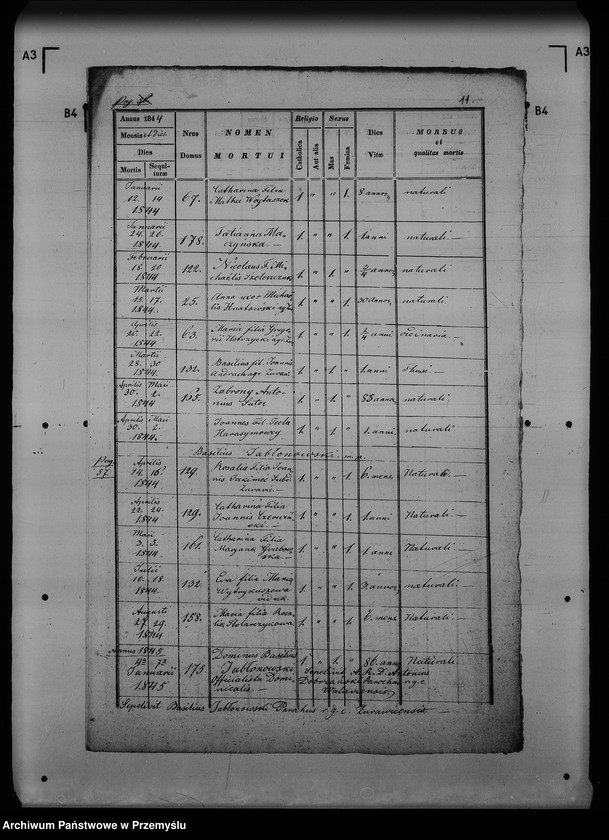 A3
A3
B4
B4
Pag.
11.
Annus 1844
Mensis et Dies
Dies
Mortis
Sepulturæ
Nrus
Domus
NOMEN
MORTUI
Religio
Catholica
Aut alia
Sexus
Mas
Femina
Dies
Vitæ
MORBUS
et
qualitas mortis
Januarii
12. 14
1844
67.
Catharina Filia
Mathei Wojtaszek
1. " " 1.
8 annor,
naturali
Januarii
24. 26.
1844
178.
Tatianna
czynska. —
1. " " 1.
1. anni
naturali. —
Februarii
18. 20
1844
122.
Nicolaus F. Mi-
chaelis
1. " 1. "
naturali
Martii
15. 17.
1844.
25.
Anna uxor Michae-
lis
1. " " 1.
30 annor,
naturali
Aprilis
20. 22.
1844
63.
Maria filia Grego-
rii Ustrzycki
1. " " 1.
2/4 anni
ordinaria. —
Martii
28. 30
1844.
132.
Basilius fil. Joannis
1. " 1. "
1. anni
Thusi —
Aprilis Maii
30. 2.
1844
135.
Zabrony Anto-
nius Sutor
1. " 1. "
83 annor,
naturali
Aprilis Maii
30. 2.
1844.
Joannes Fil. Tecla
Harasymowy
1. " 1. "
1. anni
naturali
Basilius Jablonowski m. p.
Pag
57.
Aprilis
14. 16.
1844
129.
Rosalia Filia Joan-
nis
1. " " 1.
6. mens,
Naturali. —
Aprilis
22. 24.
1844
129.
Catharina Filia
Joannis
ski. —
1. " " 1.
1. anni
Naturali. —
Maii
3. 5.
1844
161.
Catharina Filia
Maryank Grabow-
ska. —
1. " " 1.
1. anni
Naturali —
Julii
16. 18.
1844.
132.
Eva filia
1. " " 1.
naturali —
Augusti
27. 29.
1844
158.
Maria filia Rosa-
lia Stolarczykowa
1. " " 1.
6. mens
Naturali. —
Annus 1845
4a 7a
Januarii
1845
175
Dominus Basilius
Jabłonowski
Officialista Domi-
nicalis. —
1. " 1. "
86. annor
Naturali.
Sepelivit A. R. D. Antonius
Dobrzański Parochus r. g. c.
Walaviensis,
Sepelivit Basilius Jabłonowski Parochus r. g. c. Żurawiensis —
Archiwum Państwowe w Przemyślu